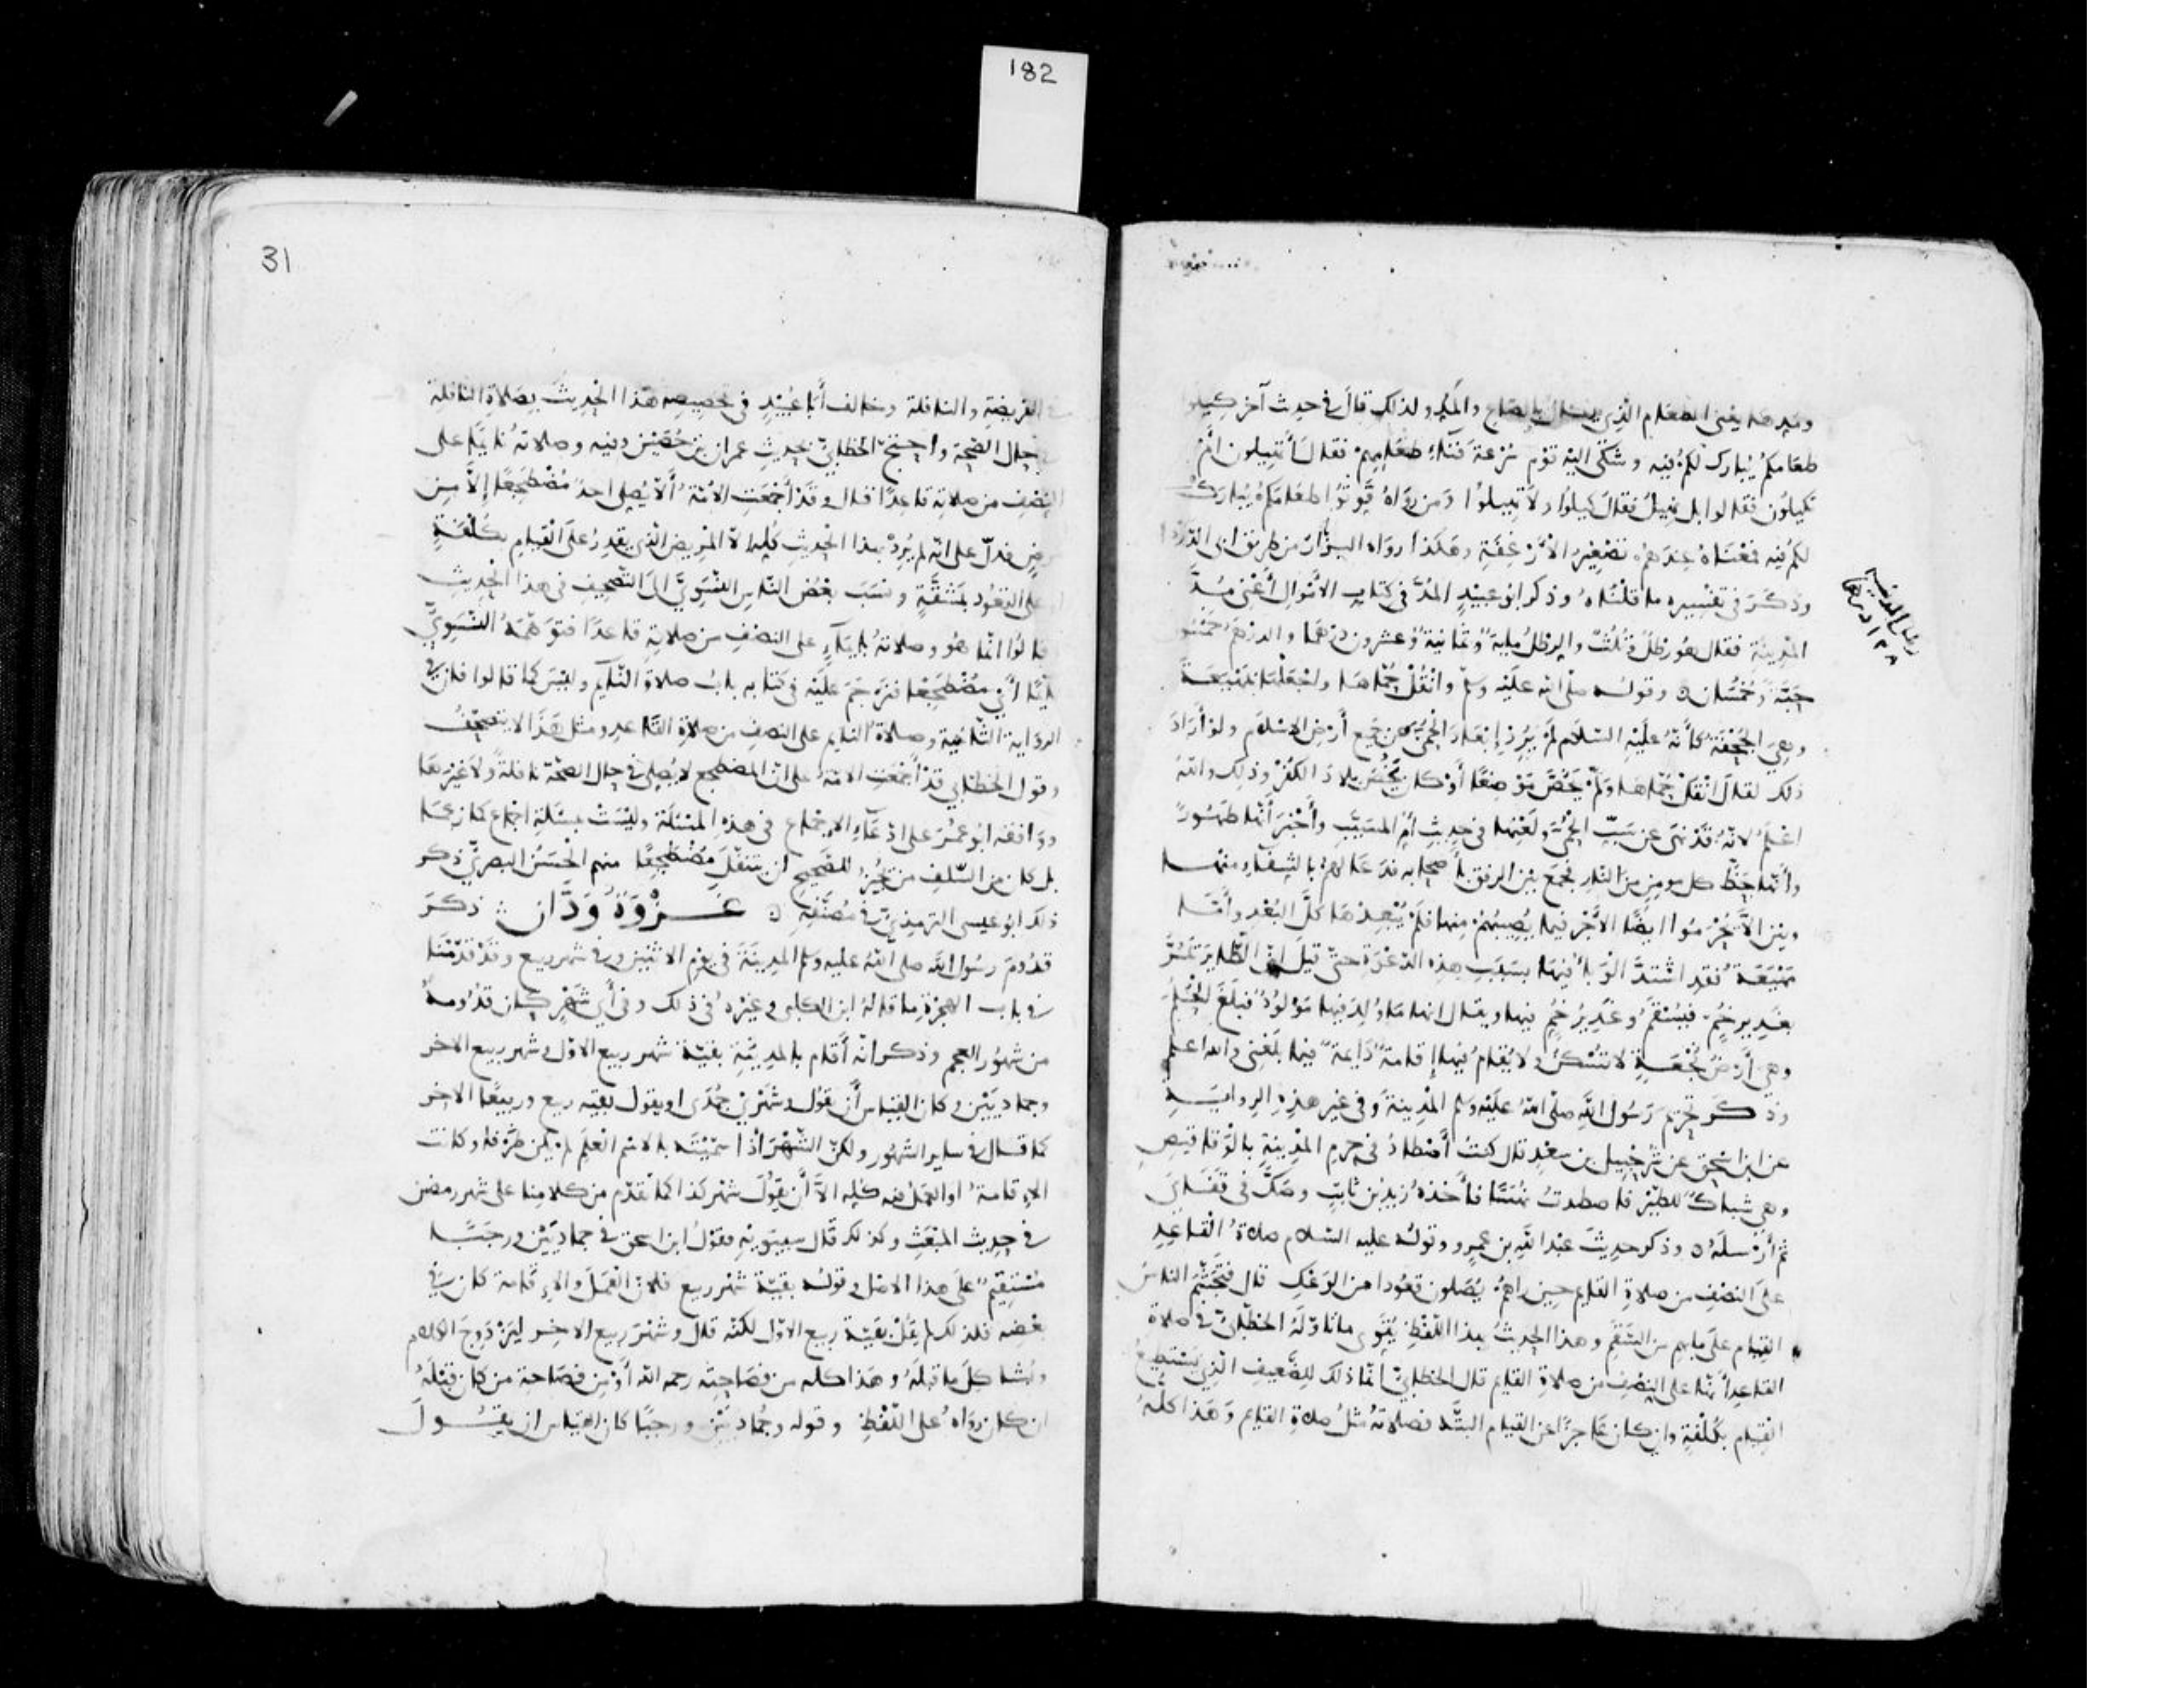 182
ومدها يعنى الطعام الذي يكال بالصاع والمد ولذلك قال في حديث آخر كيلوا
طعامكم يبارك لكم فيه وشكى اليه قوم سرعة فناء طعامهم فقال أتهيلون أم
تكيلون فقالوا بل نهيل فقال كيلوا ولا تهيلوا ومن رواه قوتوا طعامكم يبارك
لكم فيه فمعناه عندهم تصغير الأرغفة وهكذا رواه البزار من طريق ابى الدرداء
وذكر في تفسيره ما قلناه وذكر ابو عبيد المد في كتاب الأموال أعنى مد
المدينة فقال هو رطل وثلث والرطل مائة وثمانية وعشرون درهما والدرهم خمسون
حبة وخمسان وقوله صلى الله عليه وسلم وانقل حماها واجعلها بمهيعة
وهي الجحفة كأنه عليه السلام لم يرد إبعاد الحمى عن جميع أرض الاسلام ولو أراد
ذلك لقال انقل حماها ولم يخص موضعا أو كان يخص بلاد الكفر وذلك والله
اعلم لانه قد نهى عن سب الحمى ولعنها في حديث أم المسيب وأخبر أنها طهور
وأنها حظ كل مومن من النار فجمع بين الرفق بأصحابه فدعا لهم بالشفاء منها
وبين ألا يحرموا ايضا الأجر فيما يصيبهم منها فلم يبعدها كل البعد وأما
مهيعة فقد اشتد الوباء فيها بسبب هذه الدعوة حتى قيل ان الطائر يمر
بغدير خم فيسقم وغدير خم فيها ويقال انها ما ولد فيها مولود فبلغ الحلم
وهي أرض نجعة لا تسكن ولا يقام فيها إقامة دائمة فيما بلغنى والله اعلم
وذكر تحريم رسول الله صلى الله عليه وسلم المدينة وفي غير هذه الرواية
عن ابن اسحق عن شرحبيل بن سعد قال كنت أصطاد في حرم المدينة بالوقاقيص
وهي شباك للطير فاصطدت نهسا فأخذه زيد بن ثابت وصك في قفاي
ثم أرسله وذكر حديث عبد الله بن عمرو وقوله عليه السلام صلاة القاعد
على النصف من صلاة القايم حين راهم يصلون قعودا من الوعك قال فتجشم الناس
القيام على ما بهم من السقم وهذا الحديث بهذا اللفظ يقوى ما تاوله الخطابي في صلاة
القاعد أنها على النصف من صلاة القايم قال الخطابي انما ذلك للضعيف الذي يستطيع
القيام بكلفة وان كان عاجزا عن القيام البتة فصلاته مثل صلاة القايم وهذا كله
31
في الفريضة والنافلة وخالف أبا عبيد في تخصيصه هذا الحديث بصلاة النافلة
في حال الصحة واحتج الخطابي بحديث عمران بن حصين وفيه وصلاته نايما على
النصف من صلاته قاعدا قال وقد أجمعت الأمة ألا يصلي احد مضطجعا إلا من
مرض فدل على انه لم يرد بهذا الحديث كله الا المريض الذي يقدر على القيام بكلفة
او على القعود بمشقة ونسب بعض الناس النسوي الى التصحيف في هذا الحديث
قالوا انما هو وصلاته بايماء على النصف من صلاته قاعدا فتوهمه النسوي
نايما أي مضطجعا فترجم عليه في كتابه باب صلاة النايم وليس كما قالوا فان في
الرواية الثانية وصلاة النايم على النصف من صلاة القاعد ومثل هذا لا يتصحف
وقول الخطابي قد أجمعت الامة على ان المضطجع لا يصلي في حال الصحة نافلة ولا غيرها
ووافقه ابو عمر على ادعاء الاجماع في هذه المسئلة وليست بمسئلة اجماع كما زعما
بل كان من السلف من يجيز للصحيح ان يتنفل مضطجعا منهم الحسن البصري ذكر
ذلك ابو عيسى الترمذي في مصنفه غزوة ودان ذكر
قدوم رسول الله صلى الله عليه وسلم المدينة في يوم الاثنين وفي شهر ربيع وقد قدمنا
في باب الهجرة ما قاله ابن الكلبي وغيره في ذلك وفي أي شهر كان قدومه
من شهور العجم وذكر انه أقام بالمدينة بقية شهر ربيع الاول وشهر ربيع الاخر
وجماديين وكان القياس أن يقول وشهري جمادى او يقول بقية ربيع وربيعا الاخر
كما قال في ساير الشهور ولكن الشهر اذا سميته بالاسم العلم لم يكن ظرفا وكانت
الإقامة او العمل فيه كله الا أن يقول شهر كذا كما تقدم من كلامنا على شهر رمضن
في حديث المبعث وكذلك قال سيبويه فقول ابن اسحق في جماديين ورجبا
مستقيم على هذا الاصل وقوله بقية شهر ربيع فلان العمل والإقامة كان في
بعضه فلذلك لم يقل بقية ربيع الاول لكنه قال وشهر ربيع الاخر ليزدوج الكلام
ويشاكل ما قبله وهذا كله من فصاحته رحمه الله أو من فصاحة من كان قبله
ان كان رواه على اللفظ وقوله وجماديين ورجبا كان القياس ان يقول